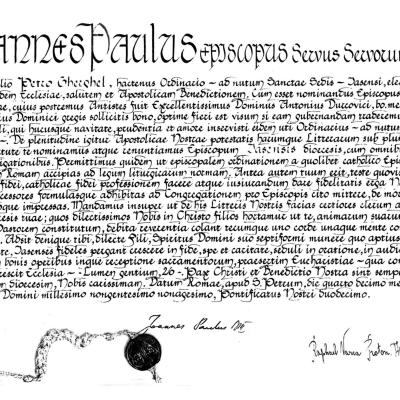 ANNES PAULUS EPISCOPUS SERVUS SERVORUM
lio Petro Gherghel, hactenus Ordinario - ad nutum Sanctae Sedis - Iasensi, elec
dem Ecclesiae, salutem et Apostolicam Benedictionem. Cum esset nominandus Episcopus
ae, cuius postremus Antistes fuit Excellentissimus Dominus Antonius Durcovici, bo. me
ius Dominici gregis solliciti bono, optime fieri est visum si eam gubernandam traderem
li, qui hucusque naviter, prudentia et amore inservisti uti Ordinarius - ad nutum
-. De plenitudine igitur Apostolicae Nostrae potestatis harumque Litterarum sub plum
tute te nominamus atque renuntiamus Episcopum Iasensis dioecesis, cum omnib
igationibus. Permittimus quidem ut episcopalem ordinationem a quolibet catholico Epis
Romam accipias ad legum liturgicarum normam. Antea autem tuum erit, teste quovis
fidei, catholicae fidei professionem facere atque iusiurandum dare fidelitatis erga No
cessores formulasque adhibitas ad Congregationem pro Episcopis cito mittere, de mo
impressas. Mandamus insuper ut de his Litteris Nostris facias certiores clerum a
cesis tuae; quos dilectissimos Nobis in Christo filios hortamur ut te, animarum suarum
Pastorem constitutum, debita reverentia colant tecumque uno corde unaque mente con
. Adsit denique tibi, dilecte Fili, Spiritus Domini suo septiformi munere quo aptius
te, Iasenses fideles pergant crescere in fide, spe et caritate, seduli in oratione, in audi
n bonis operibus inque receptione sacramentorum, praesertim Eucharistiae - qua con
rescit Ecclesia - "Lumen gentium, 26". Pax Christi et Benedictio Nostra sint semp
m dioecesim, Nobis carissimam. Datum Romae, apud S. Petrum, die quarto decimo me
Domini millesimo nongentesimo nonagesimo, Pontificatus Nostri duodecimo.
Joannes Paulus